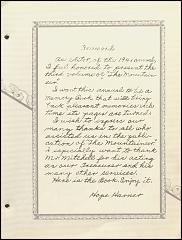 Foreword
As editor of the 1941 annual,
I feel honored to present the
third volume of "The Mountain-
eer."
I want this annual to be a
Memory Book that will bring
back pleasant memories each
time its pages are turned.
I wish to express so
many thanks to all who
assisted us in the publi-
cation of "The Mountaineer."
I especially want to thank
Mr. Mitchell for his acting
as our Treasurer and his
many other services.
Here is the Book. Enjoy it.
Hope Harner